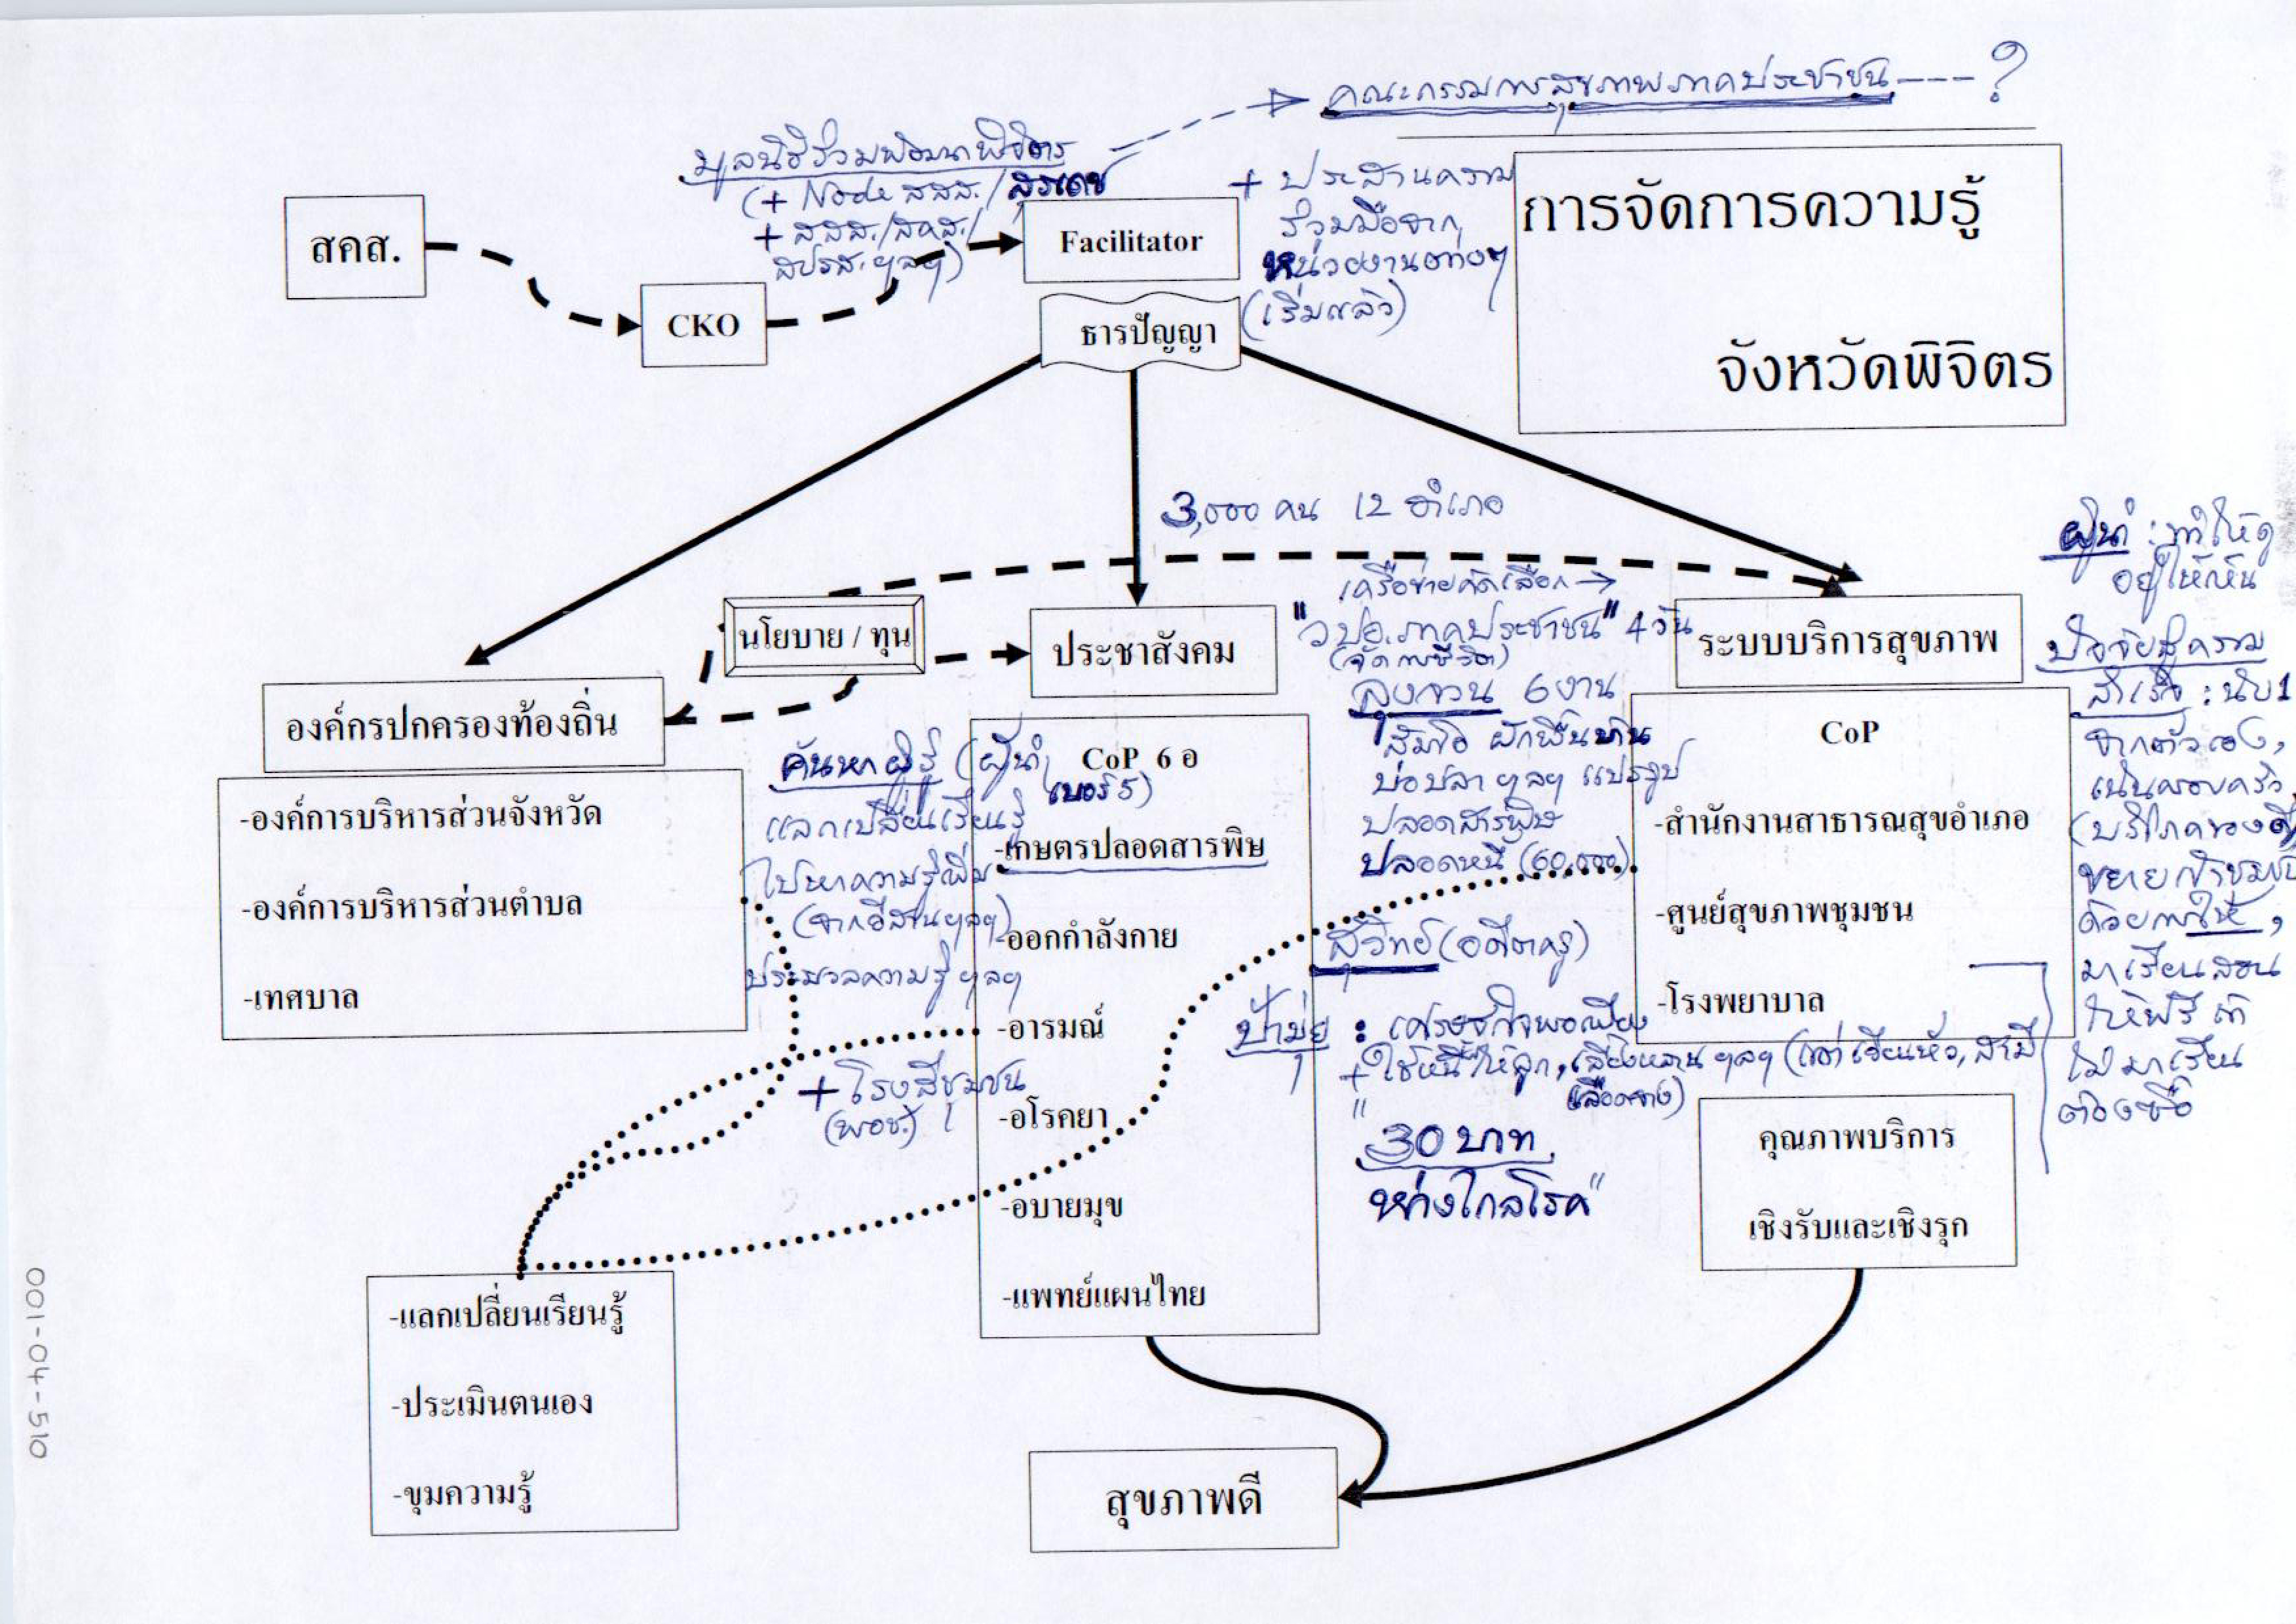 คณะกรรมการสุขภาพภาคประชาชน ---- ?
มูลนิธิร่วมพัฒนาพิจิตร
(+ Node สสส./สุรเดช
+ สสส./สคส./
สปรส. ฯลฯ)
+ ประสานความ
ร่วมมือจาก
หน่วยงานต่างๆ
(เริ่มแล้ว)
การจัดการความรู้
จังหวัดพิจิตร
สคส.
CKO
Facilitator
ธารปัญญา
3,000 คน 12 อำเภอ
นโยบาย / ทุน
ประชาสังคม
เครือข่ายคัดเลือก →
"วปอ.ภาคประชาชน" 4 วัน
(จัดการชีวิต)
ลุงจวน 6 งาน
ส้มโอ ผักพื้นบ้าน
บ่อปลา ฯลฯ แปรรูป
ปลอดสารพิษ
ปลอดหนี้ (60,000)
ระบบบริการสุขภาพ
ผู้นำ : ทำให้ดู
อยู่ให้เห็น
ปัจจัยสู่ความ
สำเร็จ : นับ 1
จากตัวเอง,
เน้นครอบครัว,
(บริโภคของดี
ขยายเข้าชุมชน
ด้วยการให้,
มาเรียนสอน
ให้ฟรี ถ้า
ไม่มาเรียน
ต้องซื้อ
องค์กรปกครองท้องถิ่น
-องค์การบริหารส่วนจังหวัด
-องค์การบริหารส่วนตำบล
-เทศบาล
ค้นหาผู้รู้ (ผู้นำ
เบอร์ 5)
แลกเปลี่ยนเรียนรู้
ไปหาความรู้เพิ่ม
(จากอีสานฯลฯ)
ประมวลความรู้ ฯลฯ
+ โรงสีชุมชน
(พอช.)
CoP 6 อ
-เกษตรปลอดสารพิษ
-ออกกำลังกาย
-อารมณ์
-อโรคยา
-อบายมุข
-แพทย์แผนไทย
CoP
-สำนักงานสาธารณสุขอำเภอ
-ศูนย์สุขภาพชุมชน
-โรงพยาบาล
สุวิทย์ (อดีตครู)
ป้ามุ่ย : เศรษฐกิจพอเพียง
+ ใช้หนี้ให้ลูก, เลี้ยงหลาน ฯลฯ
"30 บาท
ห่างไกลโรค"
คุณภาพบริการ
เชิงรับและเชิงรุก
-แลกเปลี่ยนเรียนรู้
-ประเมินตนเอง
-ขุมความรู้
สุขภาพดี
001-04-510